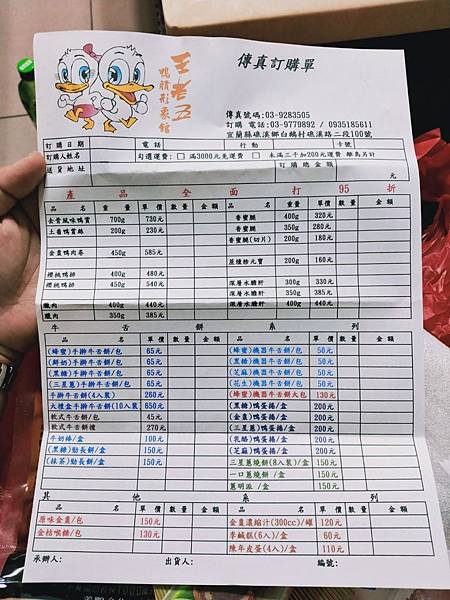 王老五
鴨賞形象館
傳真訂購單
傳真號碼:03-9283505
訂購 電話:03-9779892 / 0935185611
宜蘭縣礁溪鄉白鵝村礁溪路二段100號
訂購日期 電話 行動 卡號
訂購人姓名 勾選運費: □ 滿3000元免運費 □ 未滿三千加200元運費 離島另計
送貨地址 訂購總金額 元
產品全面打95折
品名 單價 數量 金額 品名 單價 數量 金額
去骨風味鴨賞 700g 730元 香蜜腿 400g 320元
土番鴨賞絲 200g 230元 香蜜腿 350g 280元
香蜜腿(切片) 200g 180元
金棗鴨肉卷 450g 585元
蔗燻胗元寶 200g 160元
櫻桃鴨排 400g 480元
櫻桃鴨排 450g 540元 深層水膽肝 300g 330元
深層水膽肝 350g 385元
臘肉 400g 440元 深層水膽肝 400g 440元
臘肉 350g 385元
牛舌餅系列
品名 單價 數量 金額 品名 單價 數量 金額
(蜂蜜)手擀牛舌餅/包 65元 (蜂蜜)機器牛舌餅/包 50元
(鮮奶)手擀牛舌餅/包 65元 (黑糖)機器牛舌餅/包 50元
(黑糖)手擀牛舌餅/包 65元 (芝麻)機器牛舌餅/包 50元
(三星蔥)手擀牛舌餅/包 65元 (花生)機器牛舌餅/包 50元
手擀牛舌餅(4入裝) 260元 (蜂蜜)機器牛舌餅大包 130元
大禮盒手擀牛舌餅(10入裝) 650元 (黑糖)鴨蛋捲/盒 200元
軟式牛舌餅/包 45元 (金棗)鴨蛋捲/盒 200元
軟式牛舌餅禮 270元 (三星蔥)鴨蛋捲/盒 200元
牛奶棒/盒 100元 (乳酪)鴨蛋捲/盒 200元
(黑糖)勁長餅/盒 150元 (芝麻)鴨蛋捲/盒 200元
(抹茶)勁長餅/盒 150元 三星蔥燒餅(8入裝)/盒 150元
一口蔥燒餅 /盒 150元
蔥明派 /盒 150元
其他系列
品名 單價 數量 金額 品名 單價 數量 金額
原味金棗/包 150元 金棗濃縮汁(300cc)/罐 120元
金桔喉糖/包 130元 李鹹糕(6入)/盒 60元
陳年皮蛋(4入)/盒 110元
承辦人: 出貨人: 編號: